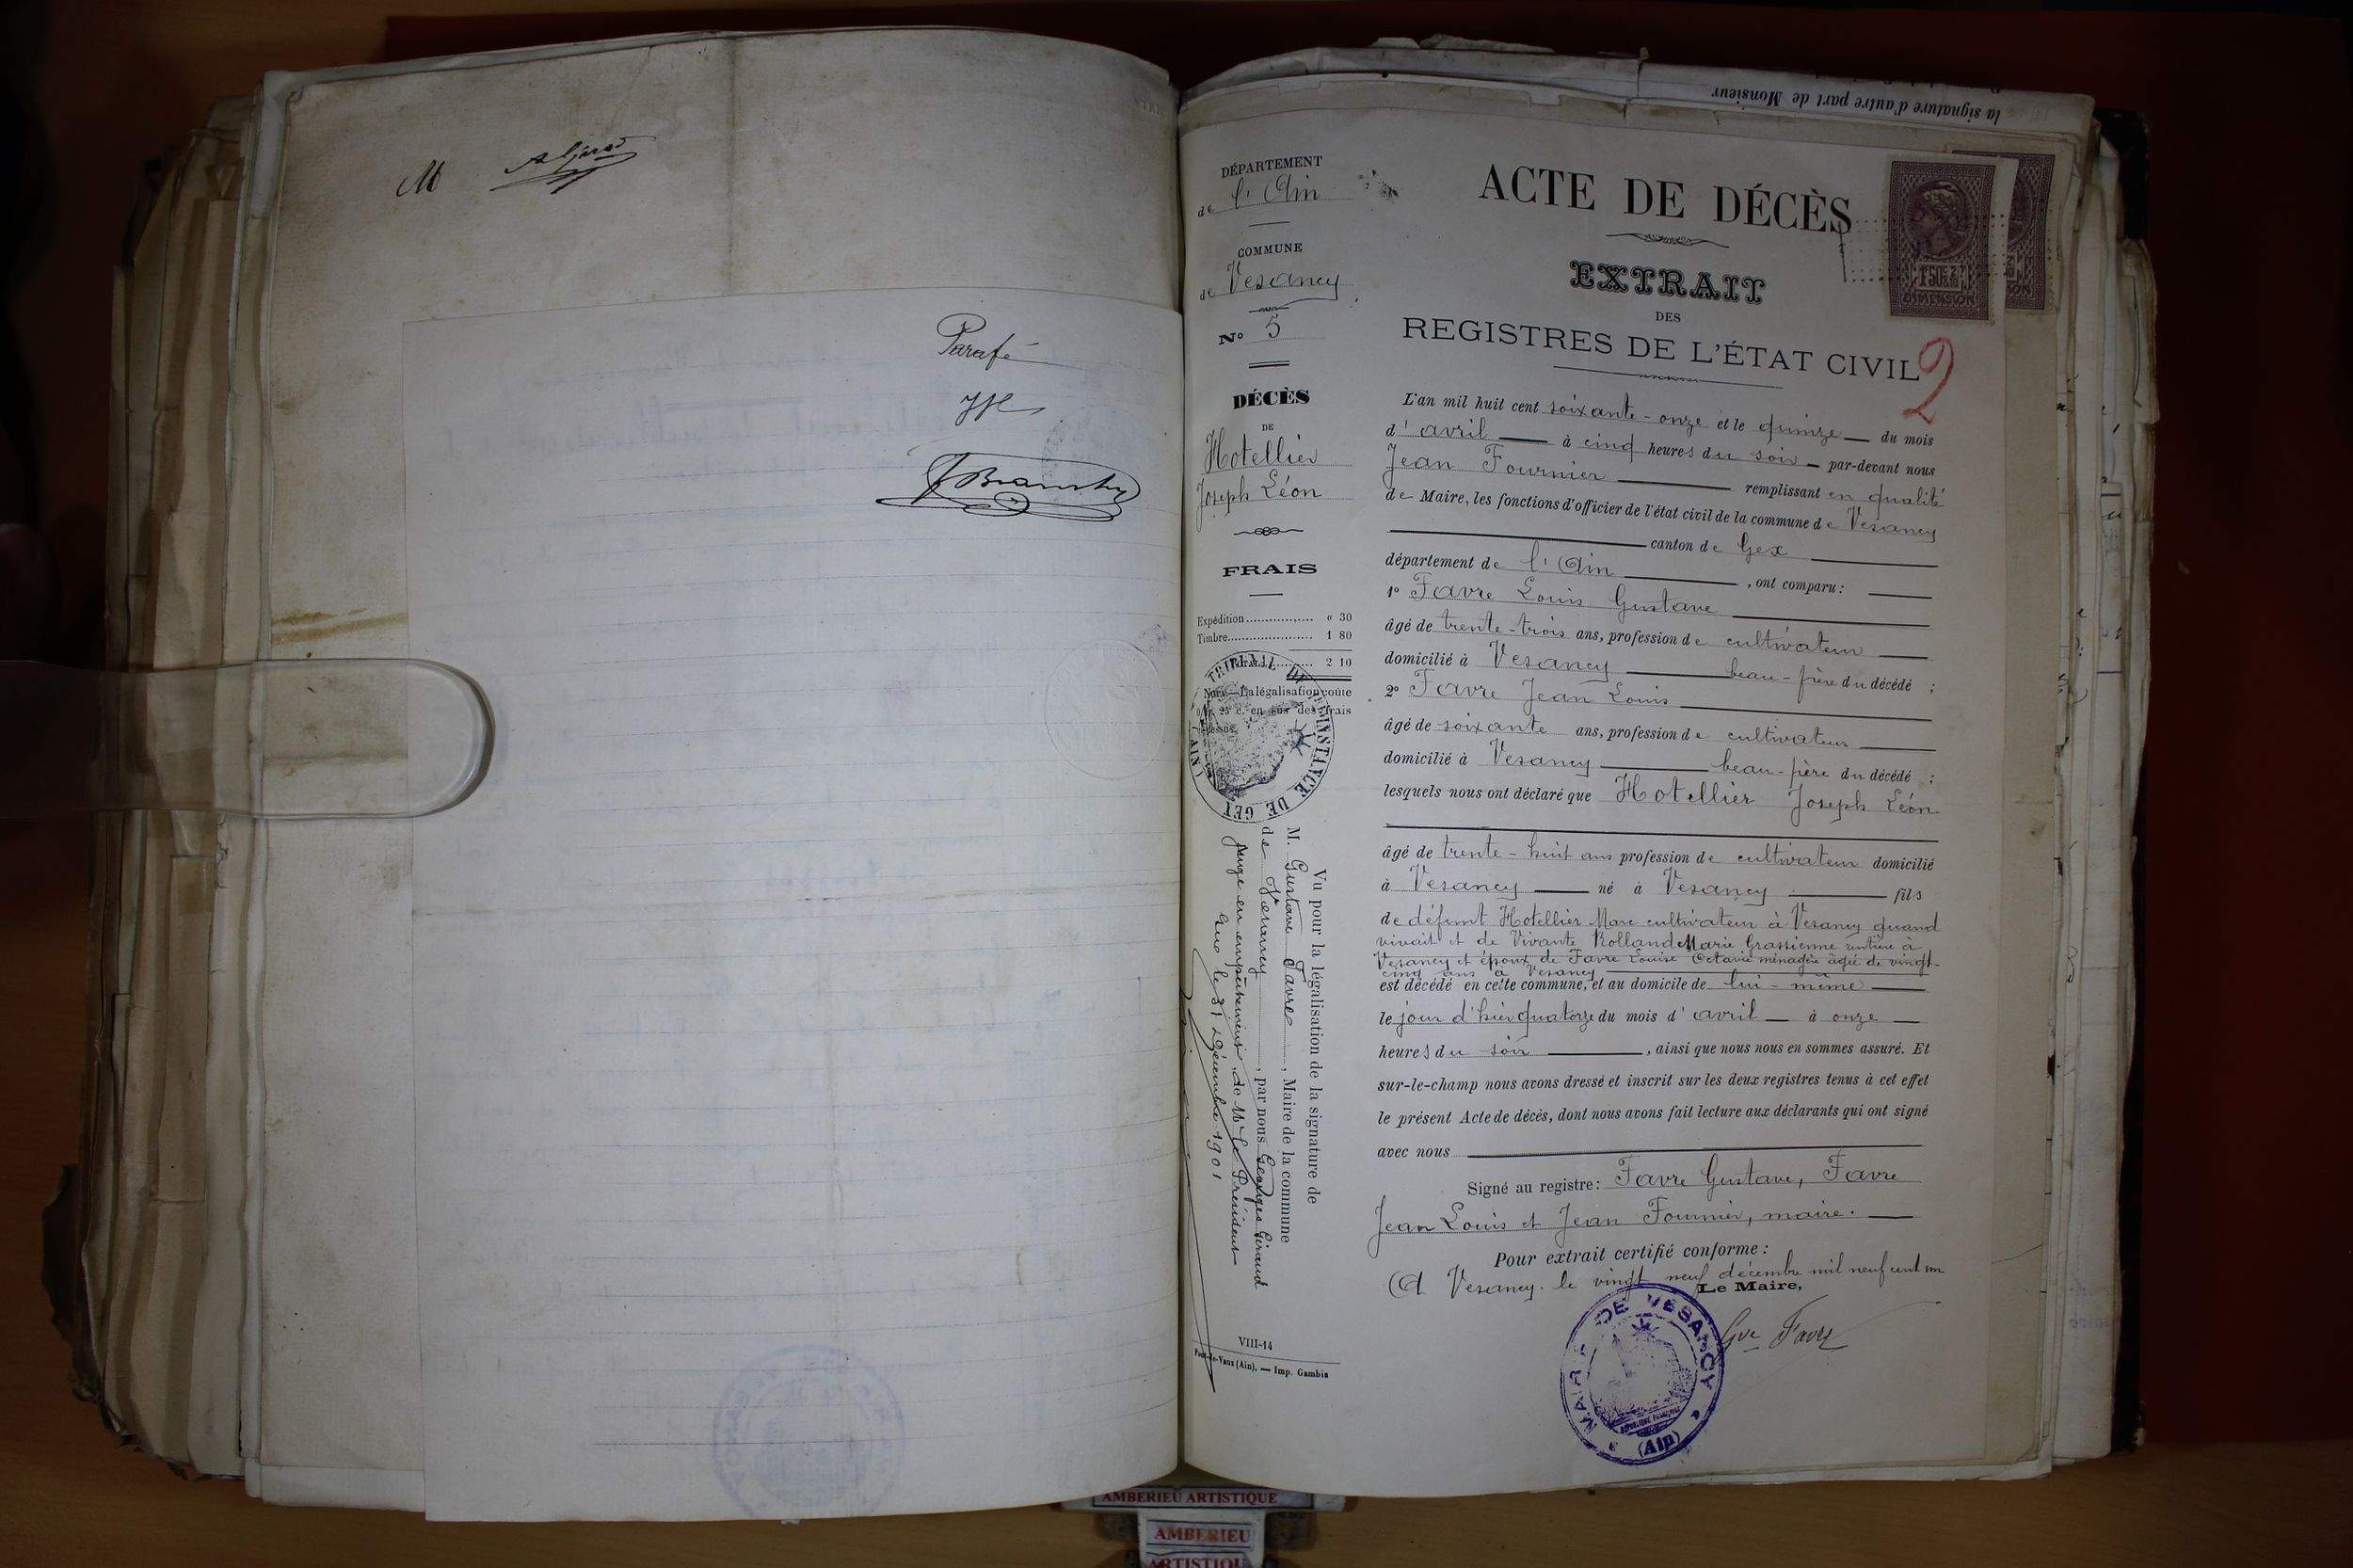 M
Parafé
la signature d'autre part de Monsieur
DÉPARTEMENT
de l'Ain
COMMUNE
de Vesancy
N° 5
DÉCÈS
DE
Hotellier
Joseph Léon
FRAIS
Expédition « 30
Timbre 1 80
2 10
Nota.—La légalisation coûte
0 fr. 25 c. en sus des frais
TRIBUNAL DE 1re INSTANCE DE GEX (AIN)
Vu pour la légalisation de la signature de
M. Gustave Favre, Maire de la commune
de Vesancy, par nous Georges Giraud
juge en empêchement de Mr le Président
Gex le 31 Décembre 1901
VIII-14
Pont-de-Vaux (Ain). — Imp. Gambis
ACTE DE DÉCÈS
1F50
DIMENSION
EXTRAIT
DES
REGISTRES DE L'ÉTAT CIVIL
2
L'an mil huit cent soixante-onze et le quinze du mois
d'avril à cinq heures du soir par-devant nous
Jean Fournier remplissant en qualité
de Maire, les fonctions d'officier de l'état civil de la commune de Vesancy
canton de Gex
département de l'Ain, ont comparu :
1° Favre Louis Gustave
âgé de trente-trois ans, profession de cultivateur
domicilié à Vesancy beau-frère du décédé ;
2° Favre Jean Louis
âgé de soixante ans, profession de cultivateur
domicilié à Vesancy beau-père du décédé ;
lesquels nous ont déclaré que Hotellier Joseph Léon
âgé de trente-huit ans profession de cultivateur domicilié
à Vesancy né à Vesancy fils
de défunt Hotellier Marc cultivateur à Vesancy quand
vivait et de Vivante Rolland Marie Grassienne rentière à
Vesancy et époux de Favre Louise Octavie ménagère âgée de vingt-
cinq ans à Vesancy
est décédé en cette commune, et au domicile de lui-même
le jour d'hier quatorze du mois d'avril à onze
heures du soir, ainsi que nous nous en sommes assuré. Et
sur-le-champ nous avons dressé et inscrit sur les deux registres tenus à cet effet
le présent Acte de décès, dont nous avons fait lecture aux déclarants qui ont signé
avec nous
Signé au registre : Favre Gustave, Favre
Jean Louis et Jean Fournier, maire.
Pour extrait certifié conforme :
A Vesancy, le vingt neuf décembre mil neuf cent un
Le Maire,
Gve Favre
MAIRIE DE VESANCY
(Ain)
AMBERIEU ARTISTIQUE
AMBERIEU
ARTISTIQUE